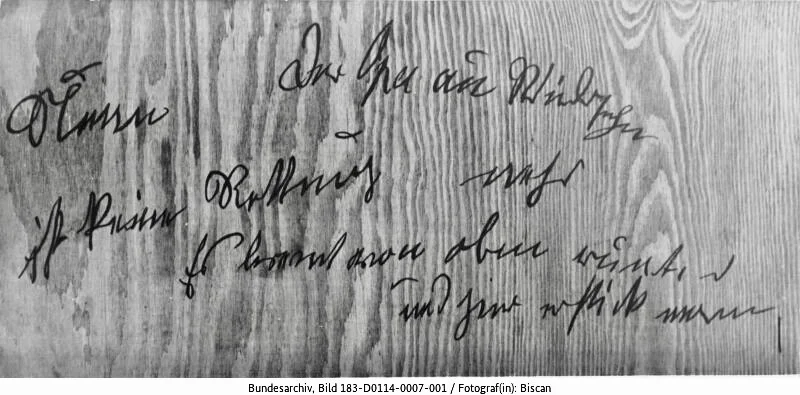 Der auf Wiedrsehn
ist keine Rettung mehr
Es brennt von oben runter
und hier erstick
Bundesarchiv, Bild 183-D0114-0007-001 / Fotograf(in): Biscan